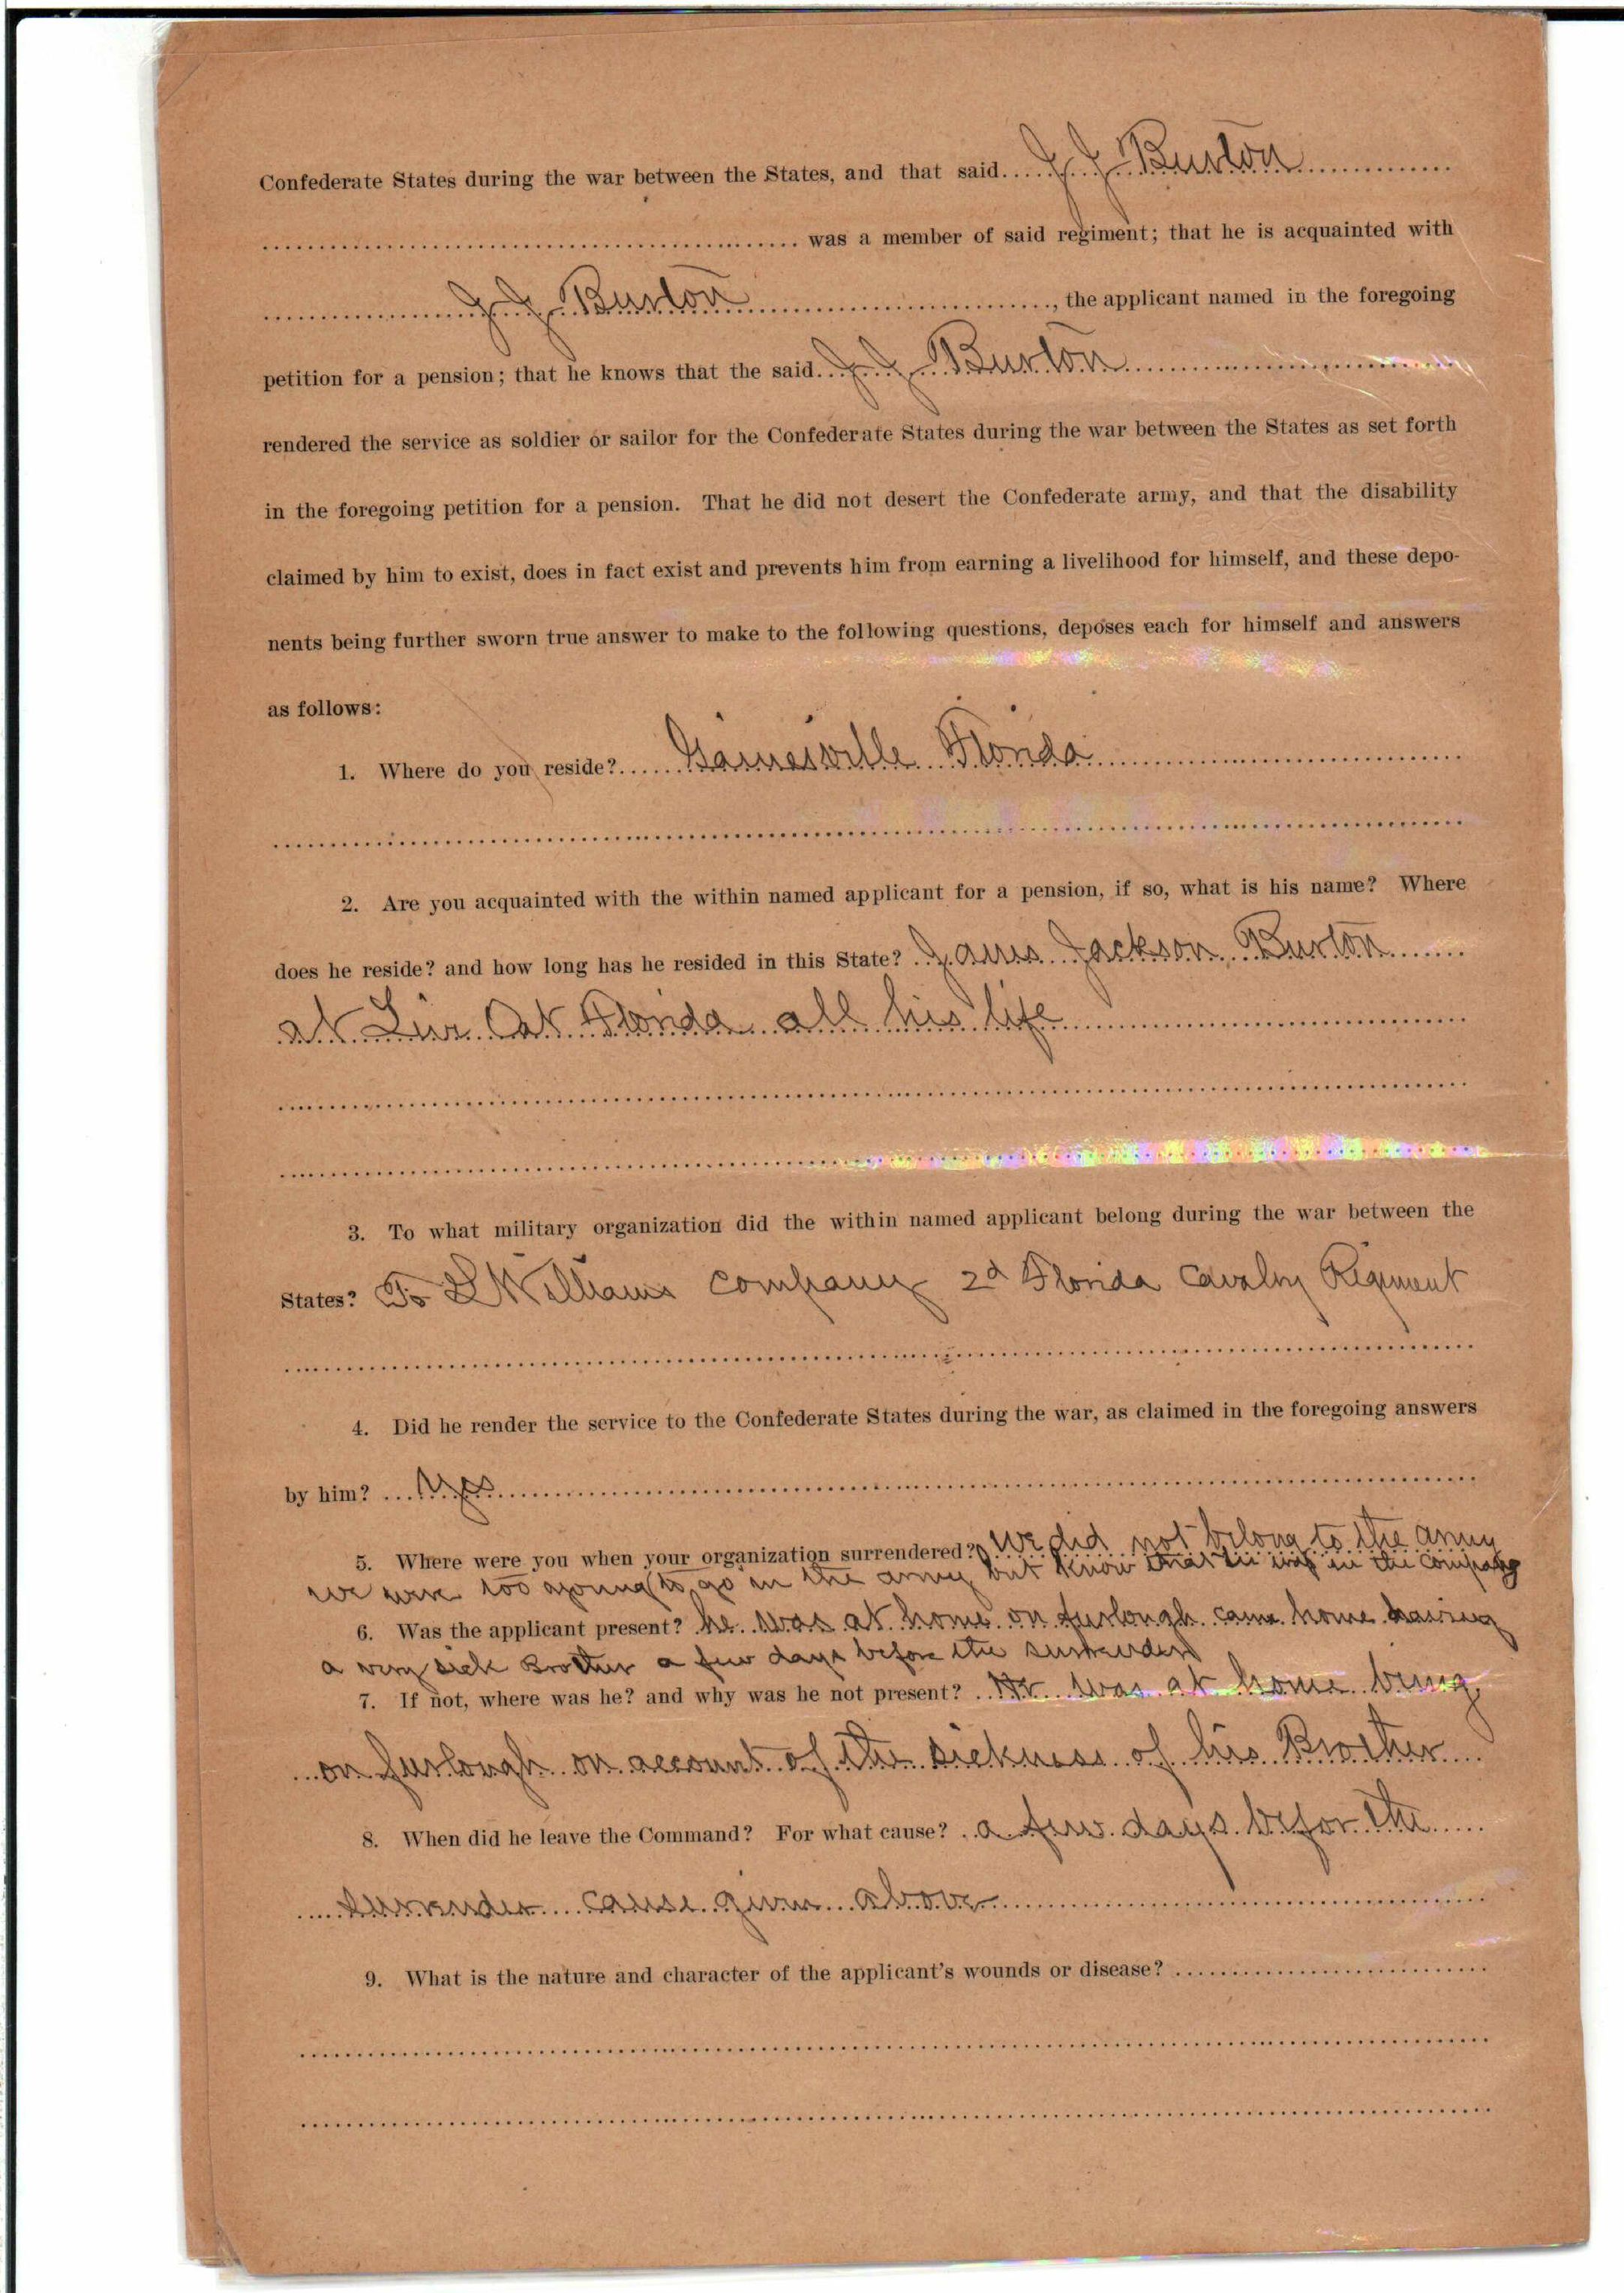 Confederate States during the war between the States, and that said J J Burton
was a member of said regiment; that he is acquainted with
J J Burton, the applicant named in the foregoing
petition for a pension; that he knows that the said J J Burton
rendered the service as soldier or sailor for the Confederate States during the war between the States as set forth
in the foregoing petition for a pension. That he did not desert the Confederate army, and that the disability
claimed by him to exist, does in fact exist and prevents him from earning a livelihood for himself, and these depo-
nents being further sworn true answer to make to the following questions, deposes each for himself and answers
as follows:
1. Where do you reside? Gainesville Florida
2. Are you acquainted with the within named applicant for a pension, if so, what is his name? Where
does he reside? and how long has he resided in this State? James Jackson Burton
at Live Oak Florida all his life
3. To what military organization did the within named applicant belong during the war between the
States? To Williams Company 2d Florida Cavalry Regiment
4. Did he render the service to the Confederate States during the war, as claimed in the foregoing answers
by him? Yes
5. Where were you when your organization surrendered? We did not belong to the army
we were too young to go in the army but know that he was in the company
6. Was the applicant present? he was at home on furlough came home having
a very sick Brother a few days before the surrender
7. If not, where was he? and why was he not present? He was at home being
on furlough on account of the sickness of his Brother
8. When did he leave the Command? For what cause? a few days befor the
surrender cause given above
9. What is the nature and character of the applicant's wounds or disease?